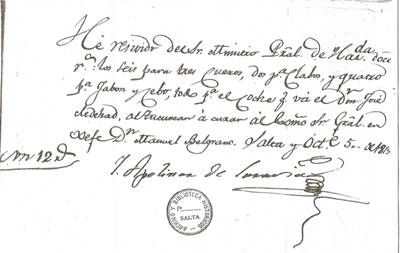 He resivido del Sr. Ministro Prâl. de Hacda. doce
rs. los seis para tres Cueros, dos pa. Clabos, y quatro
pa. Jabon y Cebo, todo pa. el Coche q. vá el Dor. José
al Tucuman á curar al Exmo Sr. Gral. en
Xefe Dn. Manuel Belgrano. Salta y Octe. 5 de 1813
Son 12 rs
J. Apolinar de Saravia
ARCHIVO Y BIBLIOTECA HISTORICOS
SALTA